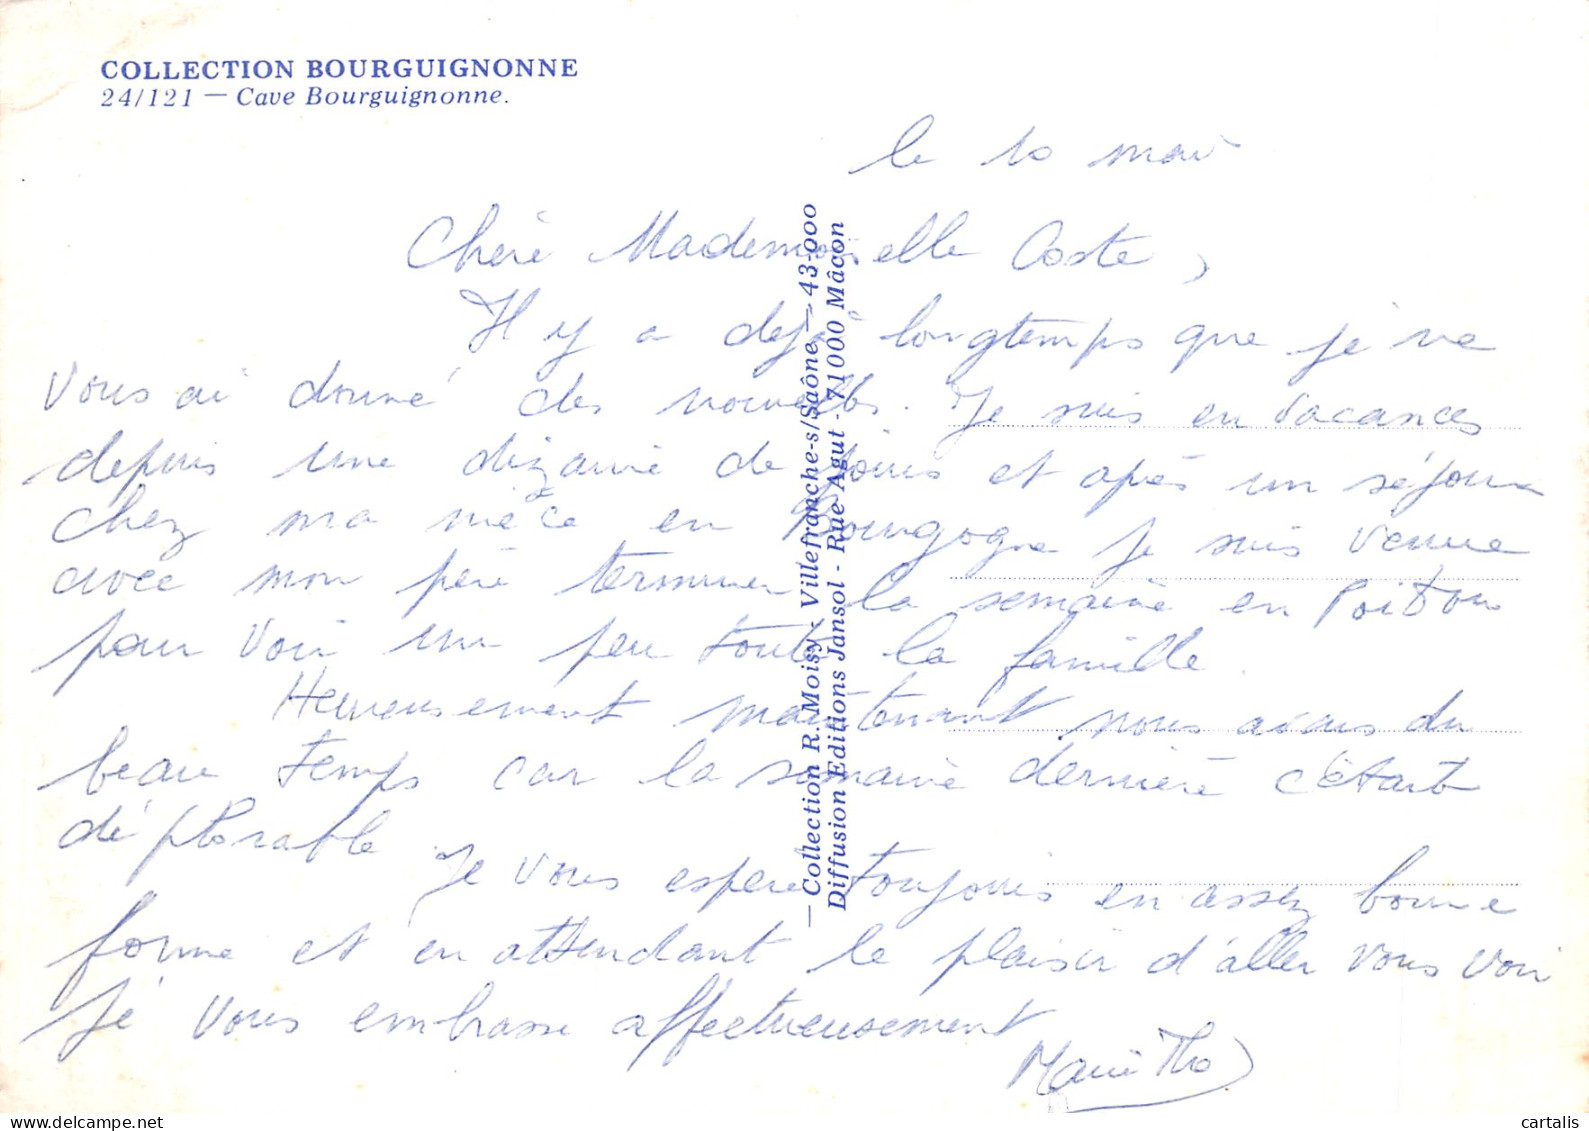 COLLECTION BOURGUIGNONNE
24/121 — Cave Bourguignonne.
le 10 mai
Chère Mademoiselle Coste,
Il y a déjà longtemps que je ne
vous ai donné des nouvelles. Je suis en vacances
depuis une dizaine de jours et après un séjour
chez ma nièce en Bourgogne je suis venue
avec mon père terminer la semaine en Poitou
pour voir un peu toute la famille.
Heureusement maintenant nous avons du
beau temps car la semaine dernière c'était
déplorable. Je vous espère toujours en assez bonne
forme et en attendant le plaisir d'aller vous voir
je vous embrasse affectueusement
Marie Tho
— Collection R. Moisy - Villefranche-s/Saône — 43-000
Diffusion Editions Jansol - Rue Agut - 71000 Mâcon
cartalis
www.delcampe.net